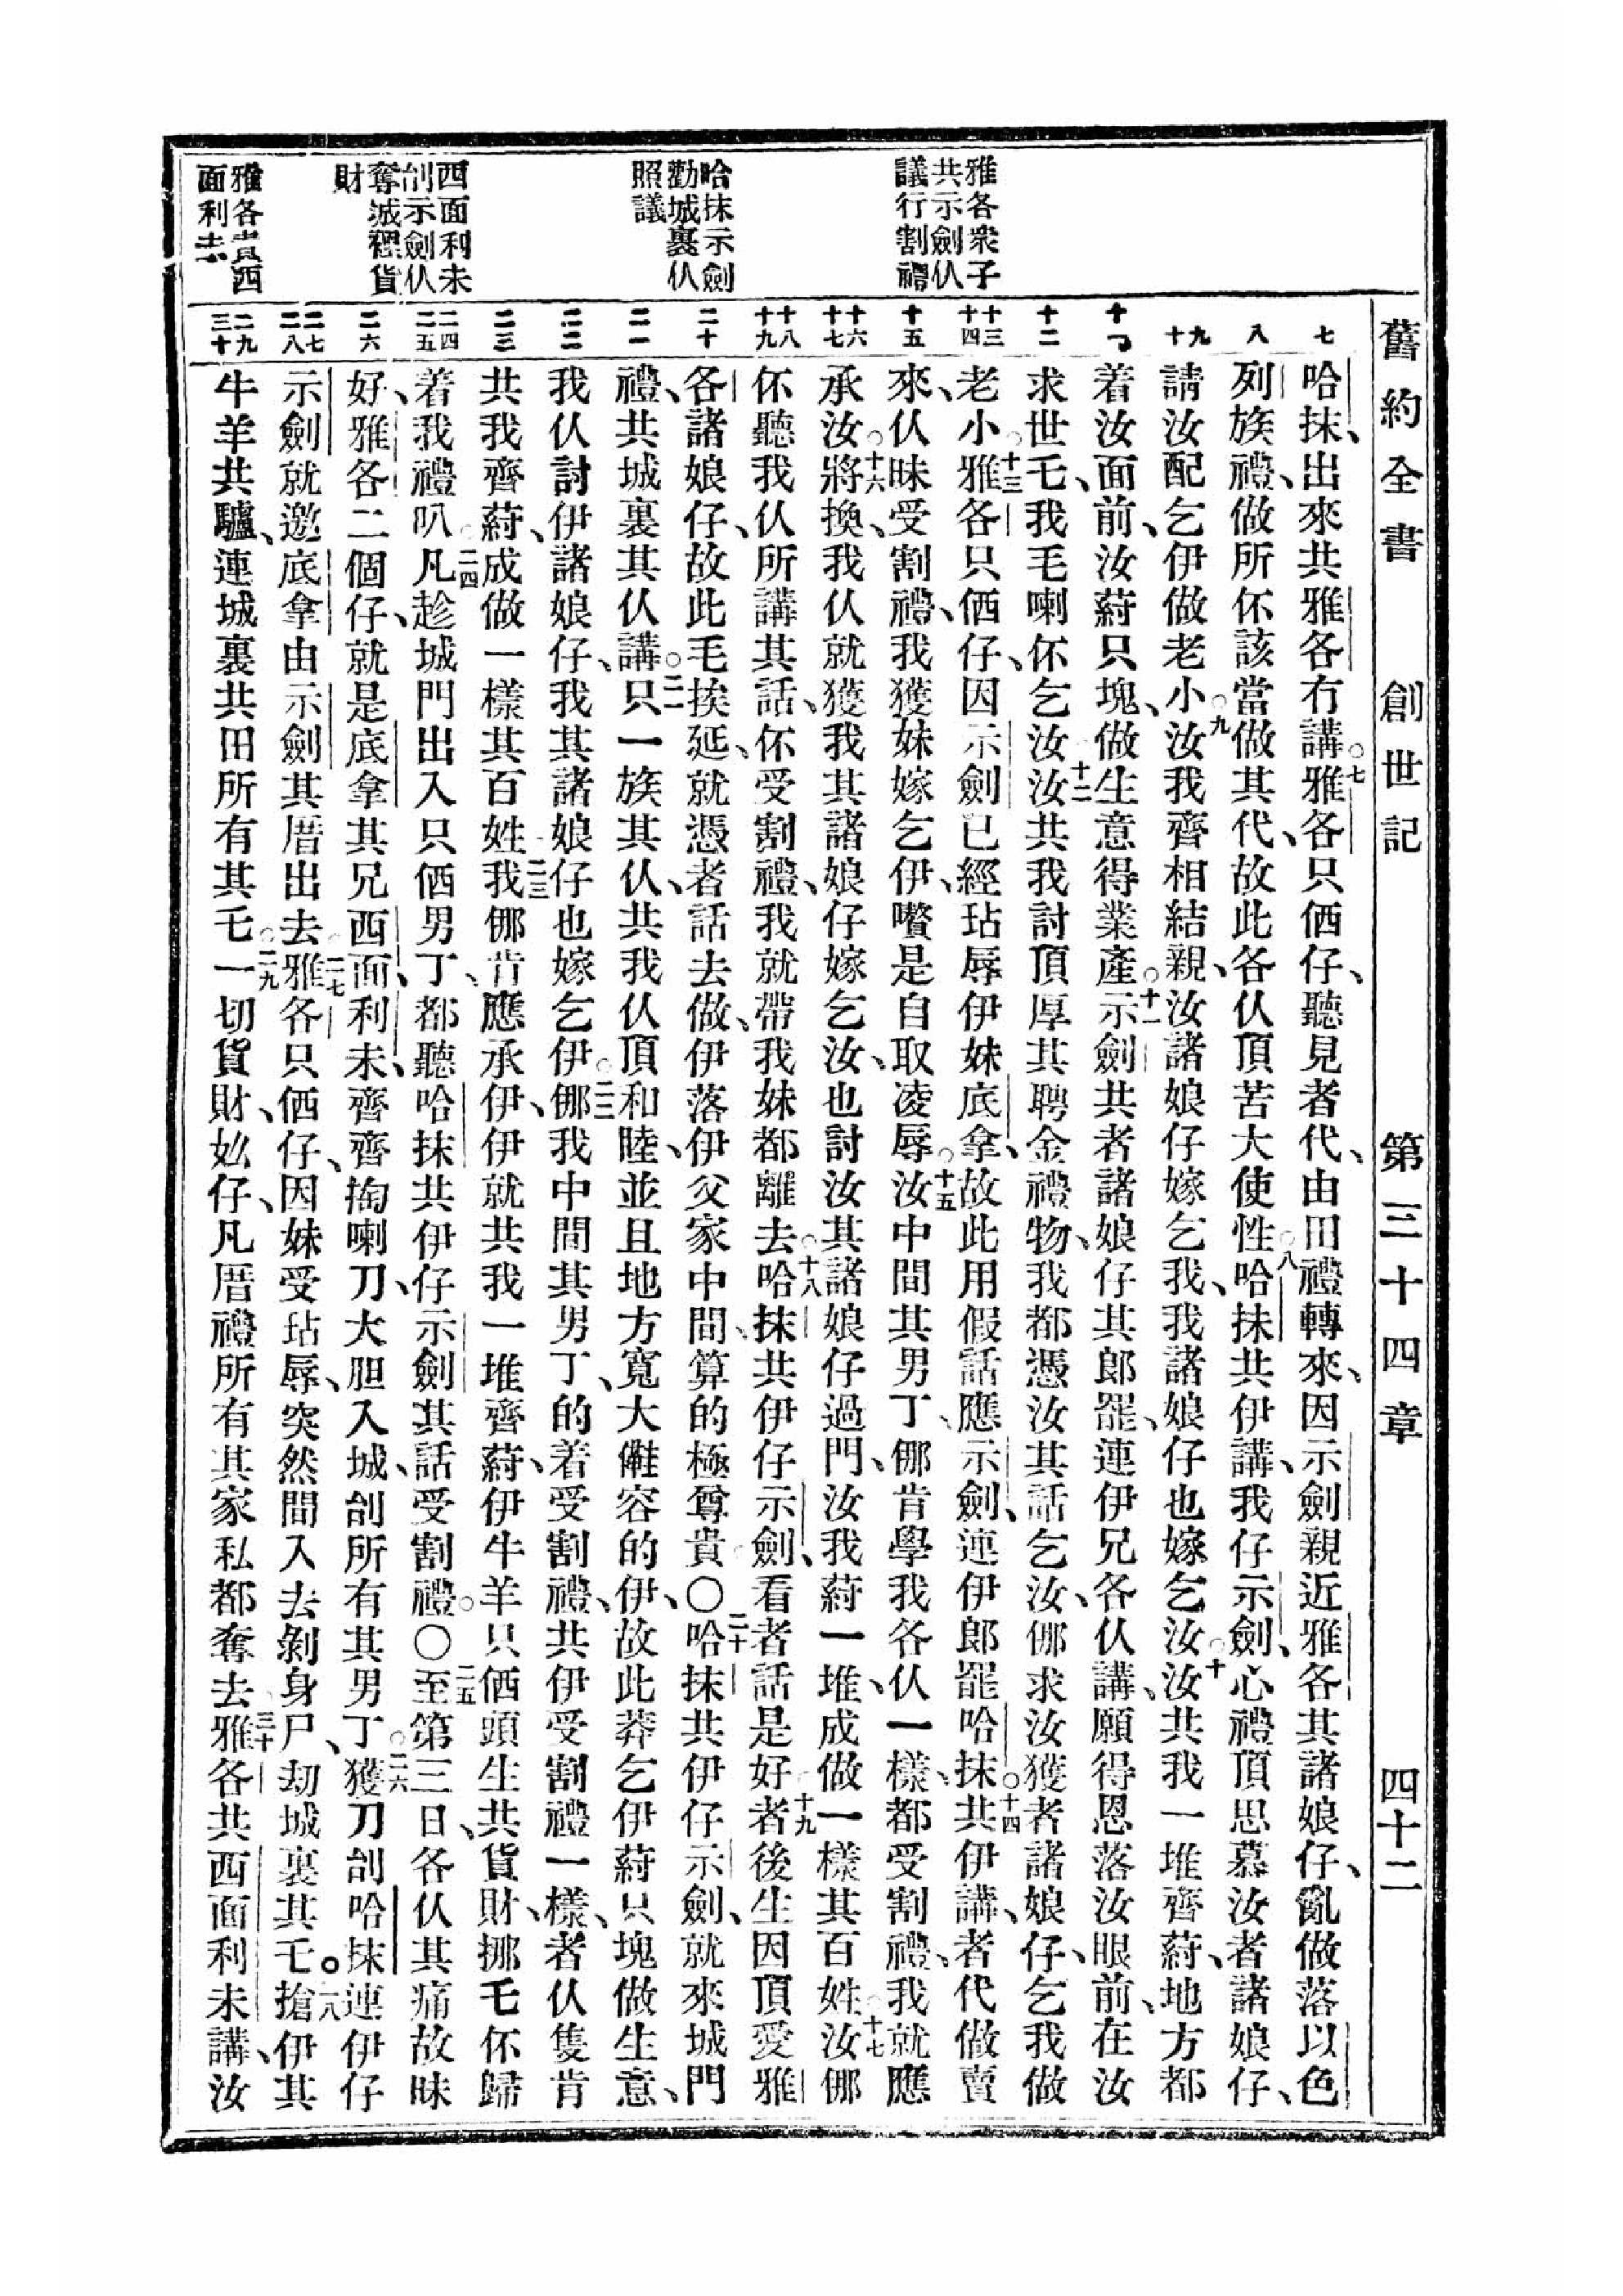 舊約全書 創世記 第三十四章 四十二
雅各衆子
共示劍仈
議行割禮
哈抹示劍
勸城裏仈
照議
西面利未
刣示劍仈
奪城裡貨
財
雅各責西
面利未
七
八
九 十
十一
十二
十三 十四
十五
十六 十七
十八 十九
二十
二一
二二
二三
二四 二五
二六
二七 二八
二九 三十
哈抹、出來共雅各冇講。七雅各只伵仔、聽見者代、由田禮轉來、因示劍親近雅各其諸娘仔、亂做落以色
列族禮、做所伓該當做其代、故此各仈頂苦大使性。八哈抹共伊講、我仔示劍、心禮頂思慕汝者諸娘仔、
請汝配乞伊做老小。九汝我齊相結親、汝諸娘仔嫁乞我、我諸娘仔也嫁乞汝。十汝共我一堆齊葤、地方都
着汝面前、汝葤只塊、做生意得業產。十一示劍共者諸娘仔其郎罷、連伊兄各仈講、願得恩落汝眼前、在汝
求世乇、我毛喇伓乞汝。十二汝共我討頂厚其聘金禮物、我都憑汝其話乞汝、㑚求汝獲者諸娘仔、乞我做
老小。十三雅各只伵仔、因示劍已經玷辱伊妹底拿、故此用假話應示劍、連伊郎罷哈抹。十四共伊講、者代做賣
來、仈昧受割禮、我獲妹嫁乞伊、囋是自取凌辱。十五汝中間其男丁、㑚肯學我各仈一樣、都受割禮、我就應
承汝。十六將換、我仈就獲我其諸娘仔嫁乞汝、也討汝其諸娘仔過門、汝我葤一堆、成做一樣其百姓。十七汝㑚
伓聽我仈所講其話、伓受割禮、我就帶我妹都離去。十八哈抹共伊仔示劍、看者話是好。十九者後生因頂愛雅
各諸娘仔、故此毛挨延、就憑者話去做、伊落伊父家中間、算的極尊貴○二十哈抹共伊仔示劍、就來城門
禮、共城裏其仈講。二一只一族其仈、共我仈頂和睦、並且地方寬大㒔容的伊、故此莽乞伊葤只塊做生意、
我仈討伊諸娘仔、我其諸娘仔也嫁乞伊。二二㑚我中間其男丁、的着受割禮、共伊受割禮一樣、者仈隻肯
共我齊葤、成做一樣其百姓。二三我㑚肯應承伊、伊就共我一堆齊葤、伊牛羊只伵頭生共貨財、挪乇伓歸
着我禮叭。二四凡趁城門出入只伵男丁、都聽哈抹共伊仔示劍其話受割禮。○二五至第三日、各仈其痛故昧
好、雅各二個仔、就是底拿其兄西面、利未、齊齊掏喇刀、大胆入城、刣所有其男丁。二六獲刀刣哈抹連伊仔
示劍、就邀底拿由示劍其厝出去。二七雅各只伵仔、因妹受玷辱、突然間入去剝身尸、刧城裏其乇。二八搶伊其
牛羊共驢、連城裏共田所有其乇。二九一切貨財、奀仔、凡厝禮所有其家私都奪去。三十雅各共西面利未講、汝